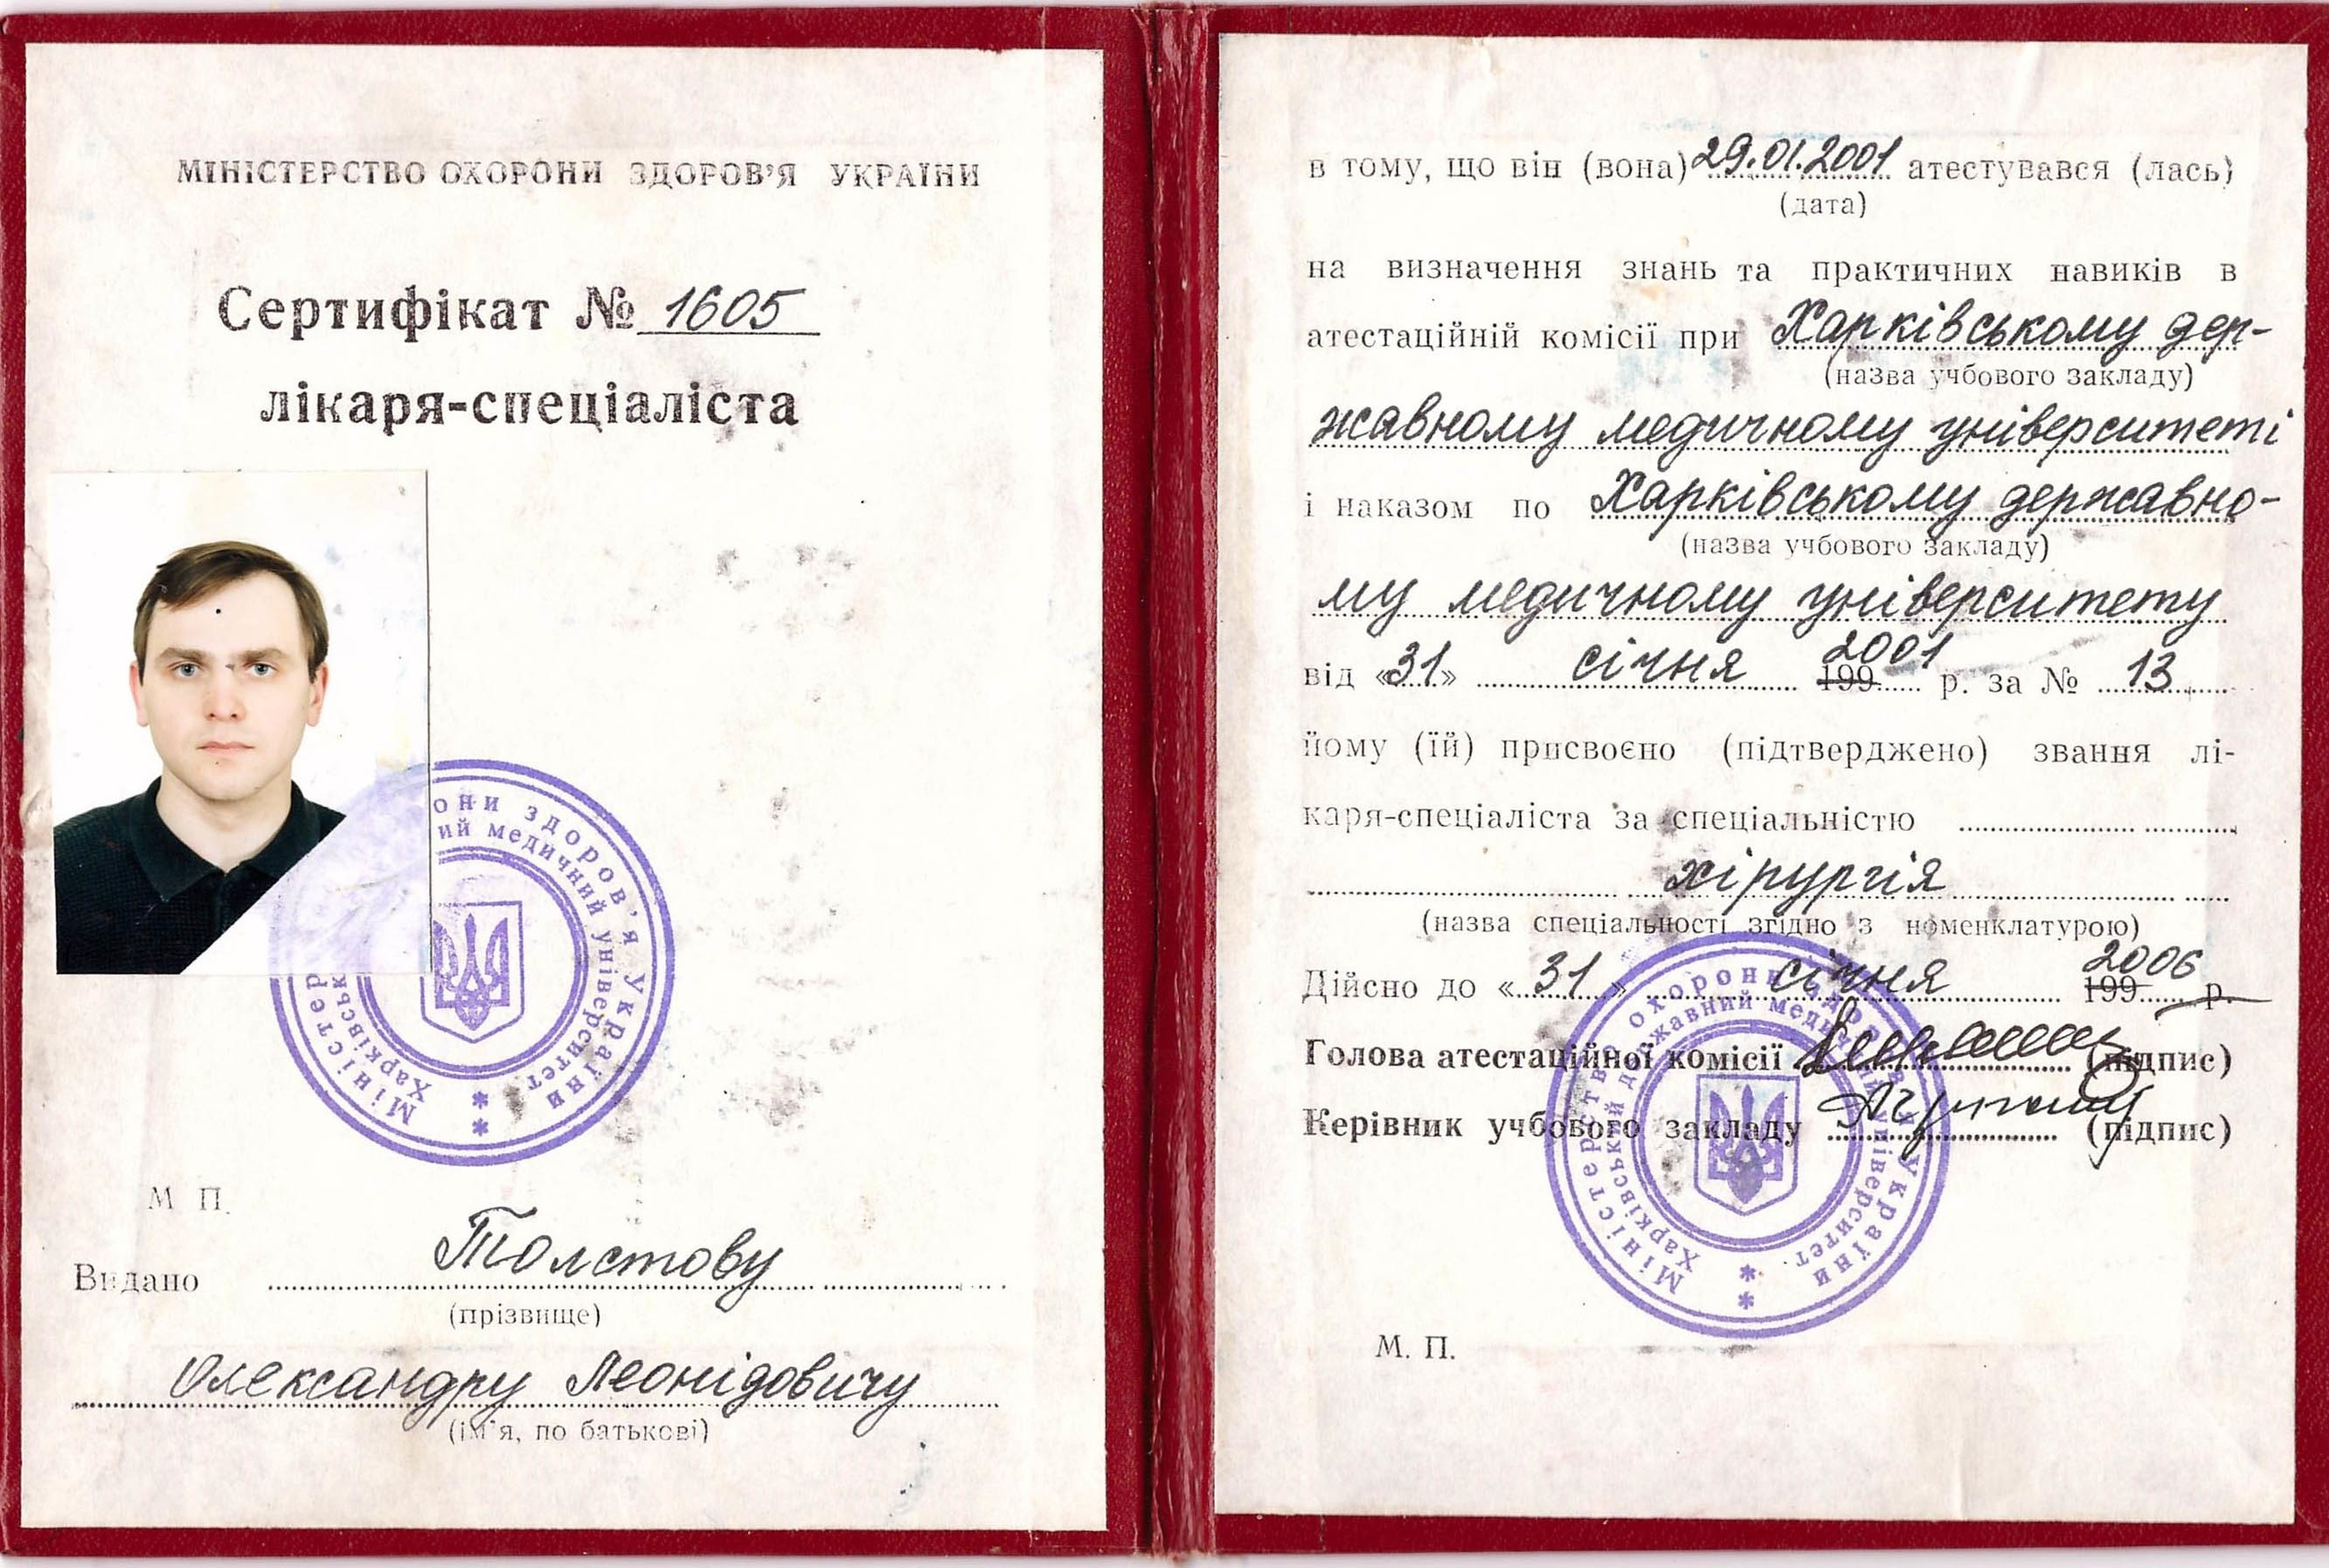 МІНІСТЕРСТВО ОХОРОНИ ЗДОРОВ'Я УКРАЇНИ
Сертифікат № 1605
лікаря-спеціаліста
Міністер они здоров'я України
Харківськ ий медичний університет
М П.
Видано Толстову
(прізвище)
Олександру Леонідовичу
(ім'я, по батькові)
в тому, що він (вона) 29.01.2001 атестувався (лась)
(дата)
на визначення знань та практичних навиків в
атестаційній комісії при Харківському дер-
(назва учбового закладу)
жавному медичному університеті
і наказом по Харківському державно-
(назва учбового закладу)
му медичному університету
від «31» січня 199 2001 р. за № 13
йому (їй) присвоєно (підтверджено) звання лі-
каря-спеціаліста за спеціальністю
хірургія
(назва спеціальності згідно з номенклатурою)
Дійсно до «31» січня 199 2006 р.
Голова атестаційної комісії (підпис)
Керівник учбового закладу (підпис)
Міністерство охорони здоров'я України
Харківський державний медичний університет
М. П.